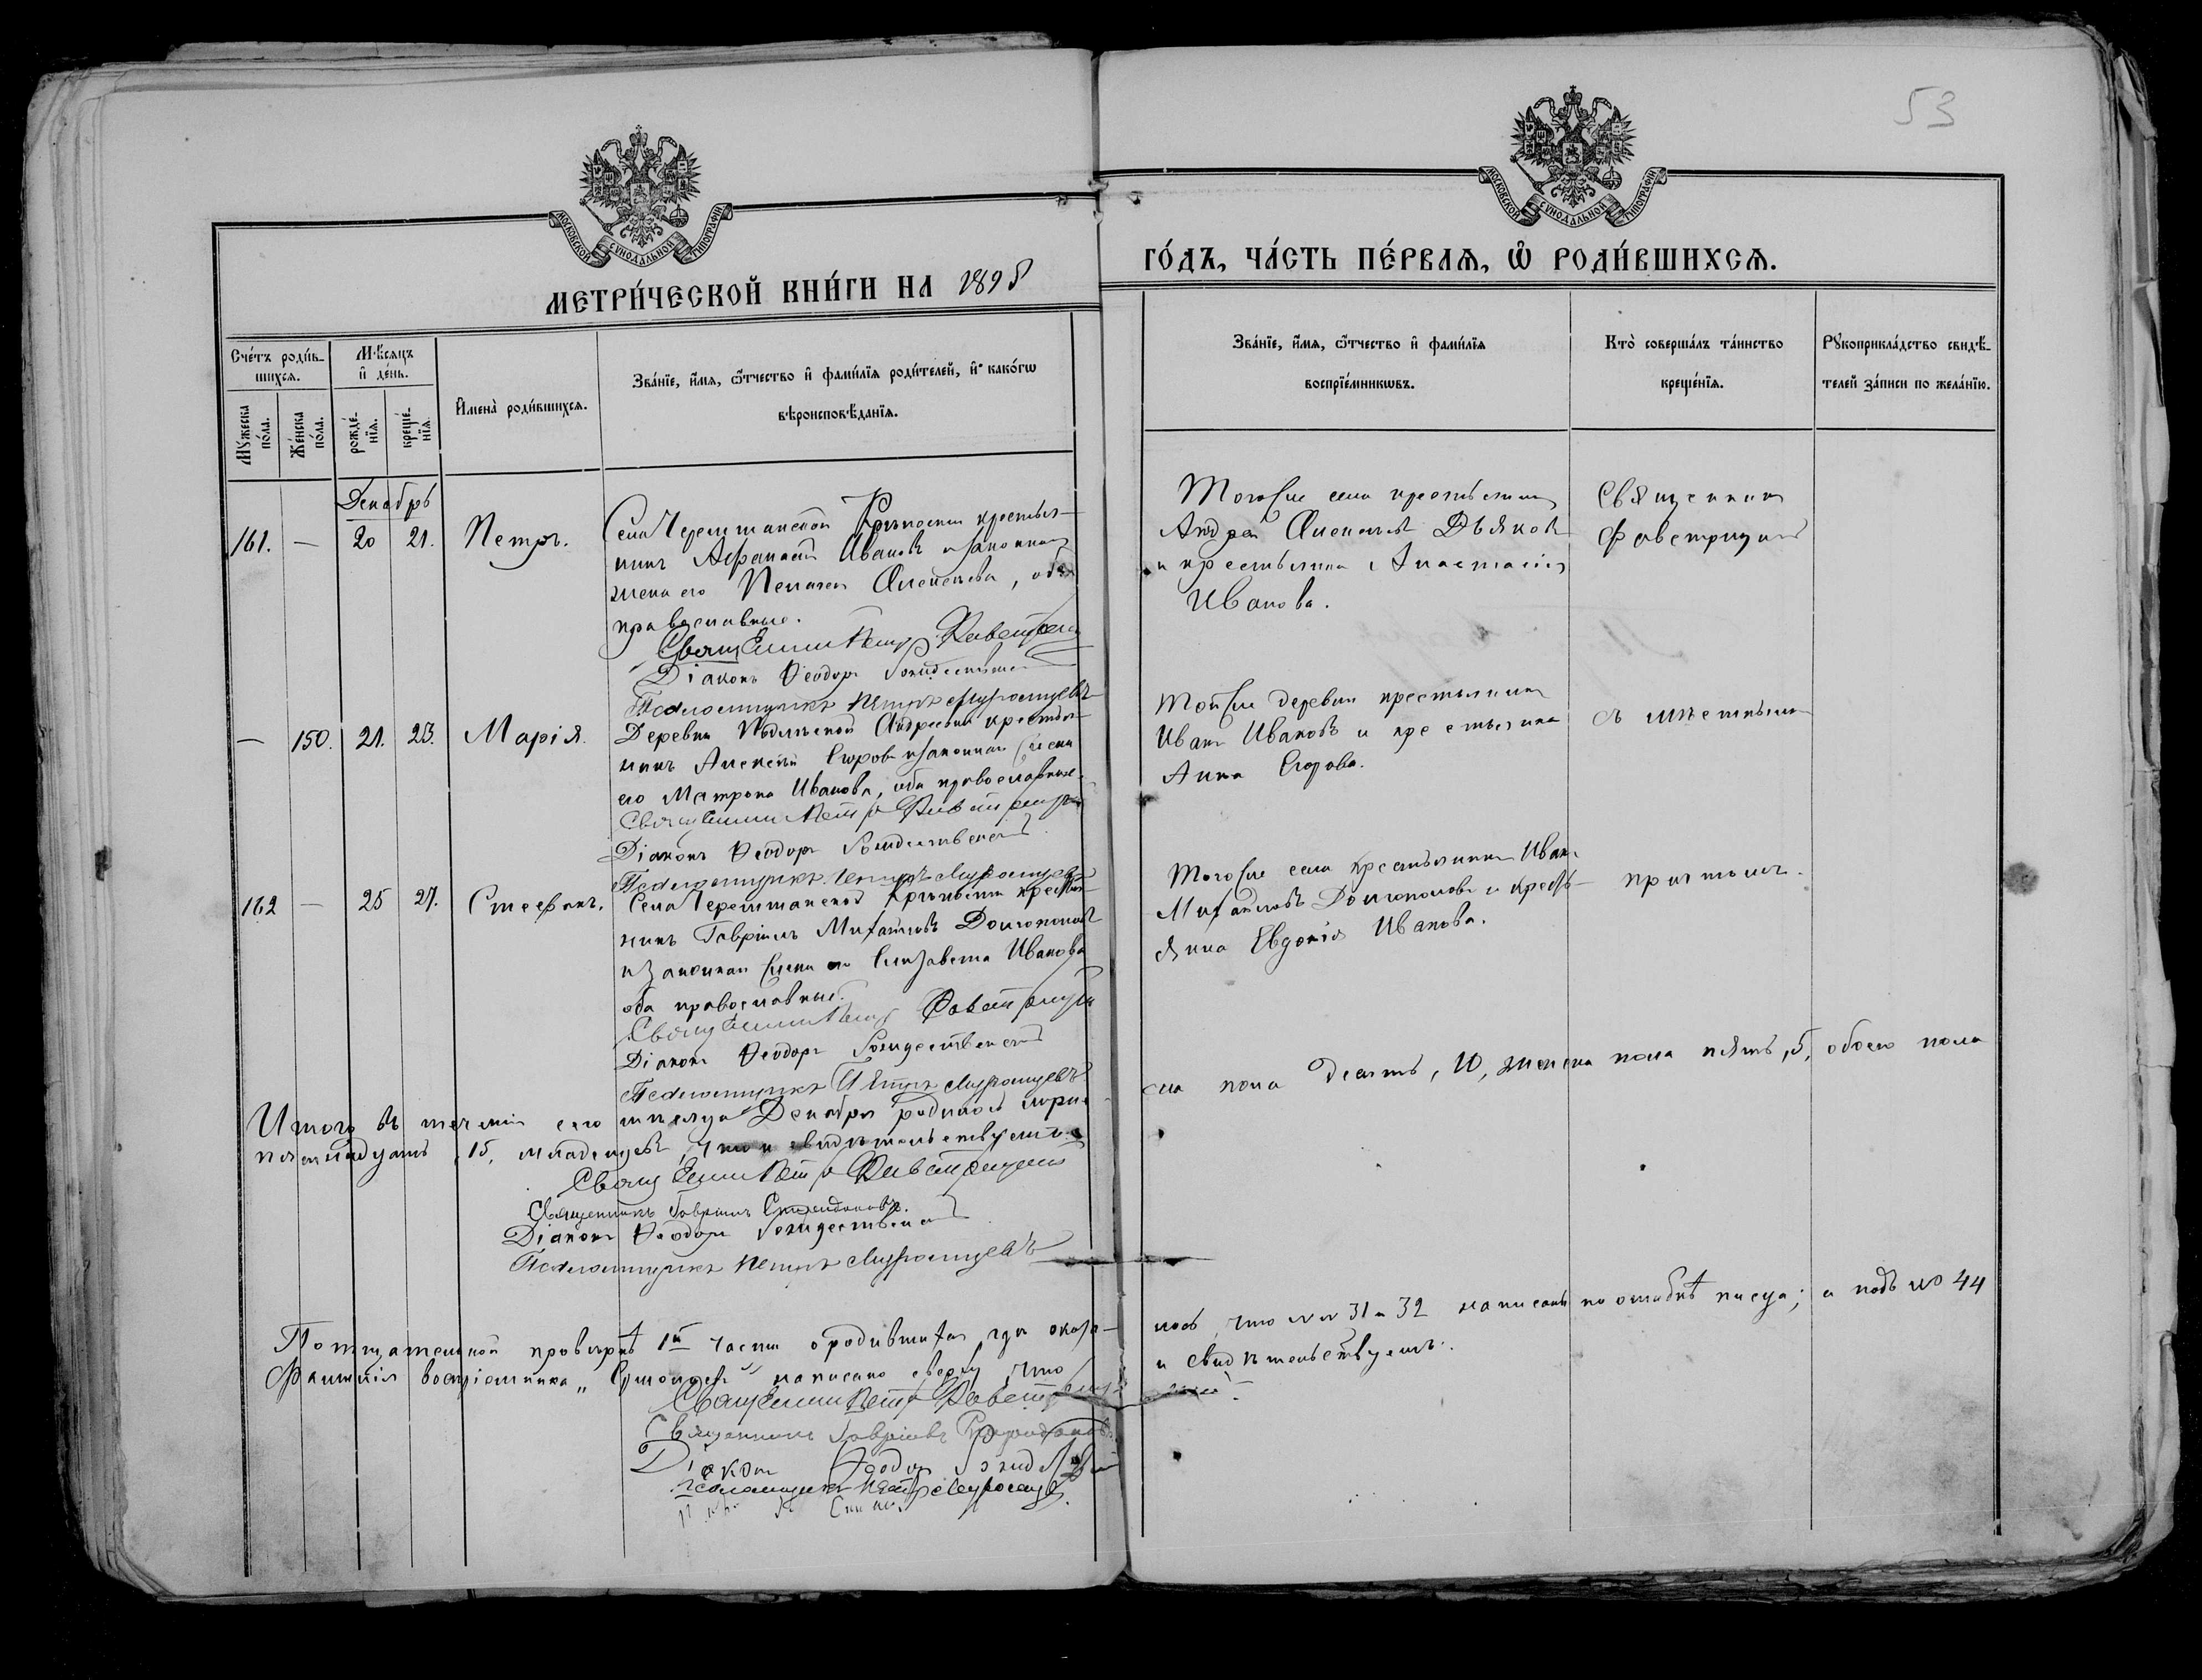 53
МОСКОВСКОЙ СУНОДАЛЬНОЙ ТИПОГРАФІИ
МОСКОВСКОЙ СУНОДАЛЬНОЙ ТИПОГРАФІИ
МЕТРИ́ЧЕСКОЙ КНИ́ГИ НА 1895
ГО́ДЪ, ЧА́СТЬ ПЕ́РВАѦ, Ѡ҆ РОДИ́ВШИХСѦ.
Сче́тъ роди́в-
шихсѧ.
Мꙋжеска
по́ла.
Же́нска
по́ла.
М҆ѣсѧцъ
и҆ де́нь.
рожде́-
нїѧ.
креще́-
нїѧ.
И҆мена̀ роди́вшихсѧ.
Зва́нїе, и҆́мѧ, ѻ҆́тчество и҆ фами́лїѧ роди́телей, и҆ како́гѡ
вѣроисповѣ́данїѧ.
Зва́нїе, и҆́мѧ, ѻ҆́тчество и҆ фами́лїѧ
воспрїе́мникѡвъ.
Кто̀ соверша́лъ та́инство
креще́нїѧ.
Рꙋкоприкла́дство свидѣ́-
телей за́писи по жела́нїю.
Декабрь
161. — 20 21. Петръ.
Села Черемшанской Крѣпости крестья-
нинъ Афанасій Ивановъ и законная
жена его Пелагея Алексѣева, оба
православные.
Священникъ Петръ
Діаконъ Ѳеодоръ Рождественскій
Псаломщикъ Петръ Муромцевъ
Того же села крестьянинъ
Андрей Алексѣевъ Дьяковъ
и крестьянка Анастасія
Иванова.
Священникъ
— 150. 21. 23. Марія.
Деревни крестья-
нинъ Алексѣй Егоровъ и законная жена
его Матрона Иванова, оба православные.
Священникъ Петръ
Діаконъ Ѳеодоръ Рождественскій
Псаломщикъ Петръ Муромцевъ
Той же деревни крестьянинъ
Иванъ Ивановъ и крестьянка
Анна Егорова.
съ мѣстнымъ
162 — 25 27. Стефанъ.
Села Черемшанской Крѣпости крестья-
нинъ Гавріилъ Михайловъ Долгополовъ
и законная жена его Елизавета Иванова
оба православные.
Священникъ Петръ
Діаконъ Ѳеодоръ Рождественскій
Псаломщикъ Петръ Муромцевъ
Того же села крестьянинъ Иванъ
Михайловъ Долгополовъ и кресть-
янка Евдокія Иванова.
причтомъ.
Итого въ теченіи сего мѣсяца Декабря родилось мужс-
ска пола десять, 10, женска пола пять, 5, обоего пола
пятнадцать, 15, младенцевъ, что и свидѣтельствуемъ.
Священникъ Петръ
Священникъ Гавріилъ
Діаконъ Ѳеодоръ Рождественскій
Псаломщикъ Петръ Муромцевъ
По тщательной провѣркѣ 1й части о родившихся оказа-
лось, что №№ 31 и 32 написаны по ошибкѣ писца; а подъ № 44
Фамилія воспріемника написано сверху, что
и свидѣтельствуемъ.
Священникъ Петръ
Священникъ Гавріилъ
Діаконъ Ѳеодоръ
Псаломщикъ Петръ Муромцевъ